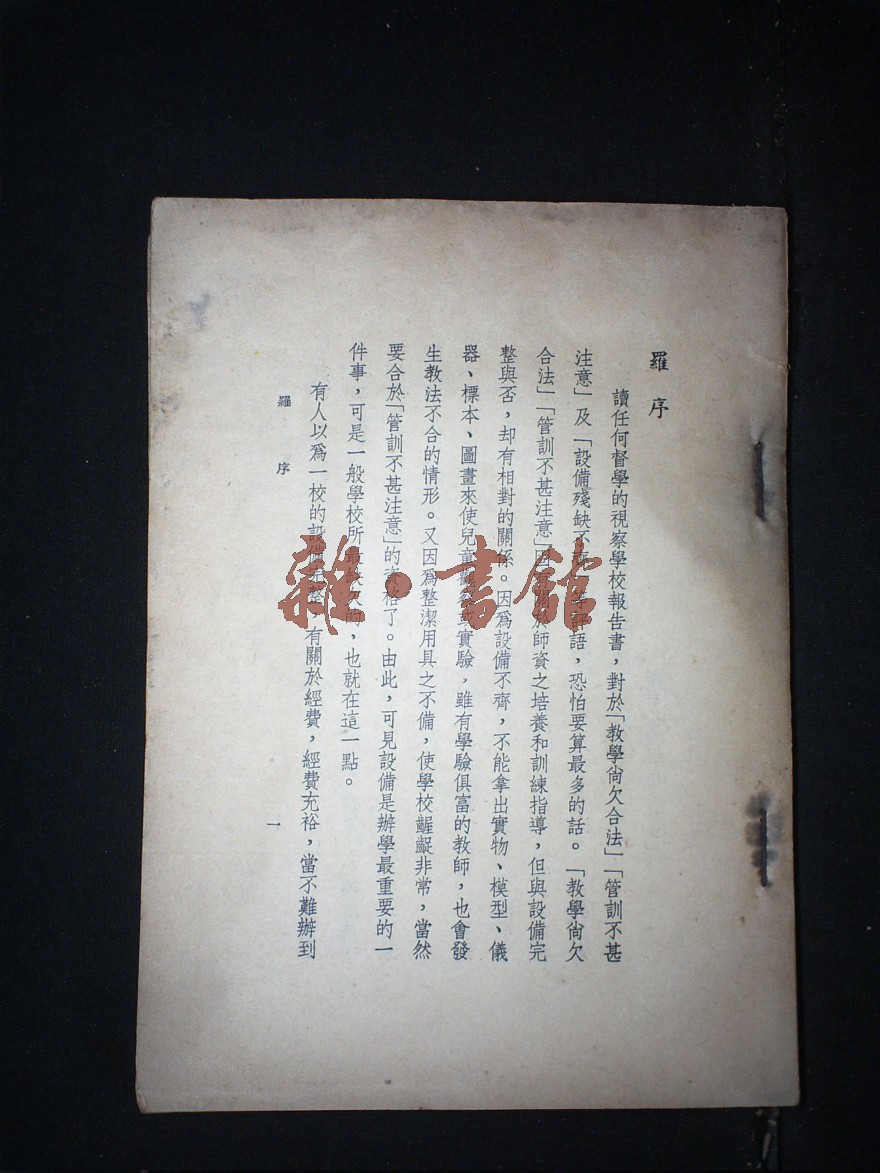 羅序
讀任何督學的視察學校報告書，對於「教學尙欠合法」「管訓不甚
注意」及「設備殘缺不齊」等評語，恐怕要算最多的話。「教學尙欠
合法」「管訓不甚注意」固有關於師資之培養和訓練指導，但與設備完
整與否，却有相對的關係。因爲設備不齊，不能拿出實物、模型、儀
器、標本、圖畫來使兒童觀察或實驗，雖有學驗俱富的教師，也會發
生教法不合的情形。又因爲整潔用具之不備，使學校齷齪非常，當然
要合於「管訓不甚注意」的資格了。由此，可見設備是辦學最重要的一
件事，可是一般學校所最缺欠的，也就在這一點。
有人以爲一校的設備完整，有關於經費，經費充裕，當不難辦到
羅序
一
雜·書館